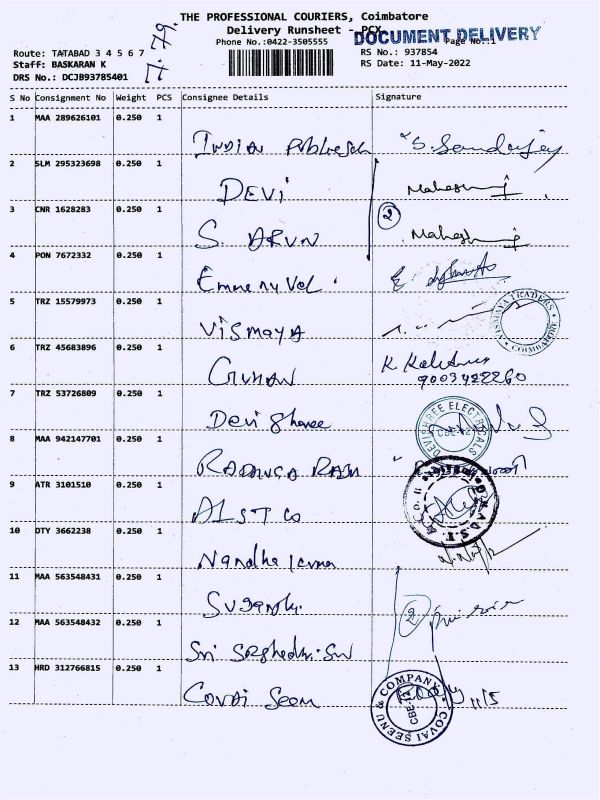 THE PROFESSIONAL COURIERS, Coimbatore
Delivery Runsheet - PCY
Phone No.:0422-3505555
DOCUMENT DELIVERY
Page No.:1
17.79.
Route: TATABAD 3 4 5 6 7
Staff: BASKARAN K
DRS No.: DCJB93785401
RS No.: 937854
RS Date: 11-May-2022
S No Consignment No Weight PCS Consignee Details Signature
1 MAA 289626101 0.250 1
INDIAN
2 SLM 295323698 0.250 1
DEVI
3 CNR 1628283 0.250 1
2
S. ARUN
4 PON 7672332 0.250 1
5 TRZ 15579973 0.250 1
VISMAYA
VISMAYA TRADERS COIMBATORE
6 TRZ 45683896 0.250 1
GUHAN
9003422260
7 TRZ 53726809 0.250 1
Devi Shree
DEVISHREE ELECTRICALS
CBE-12
8 MAA 942147701 0.250 1
9 ATR 3101510 0.250 1
10 DTY 3662238 0.250 1
Nandha
11 MAA 563548431 0.250 1
2
12 MAA 563548432 0.250 1
Sri
13 HRD 312766815 0.250 1
COVAI Seenu
COVAI SEENU & COMPANY
CBE-12
11/5